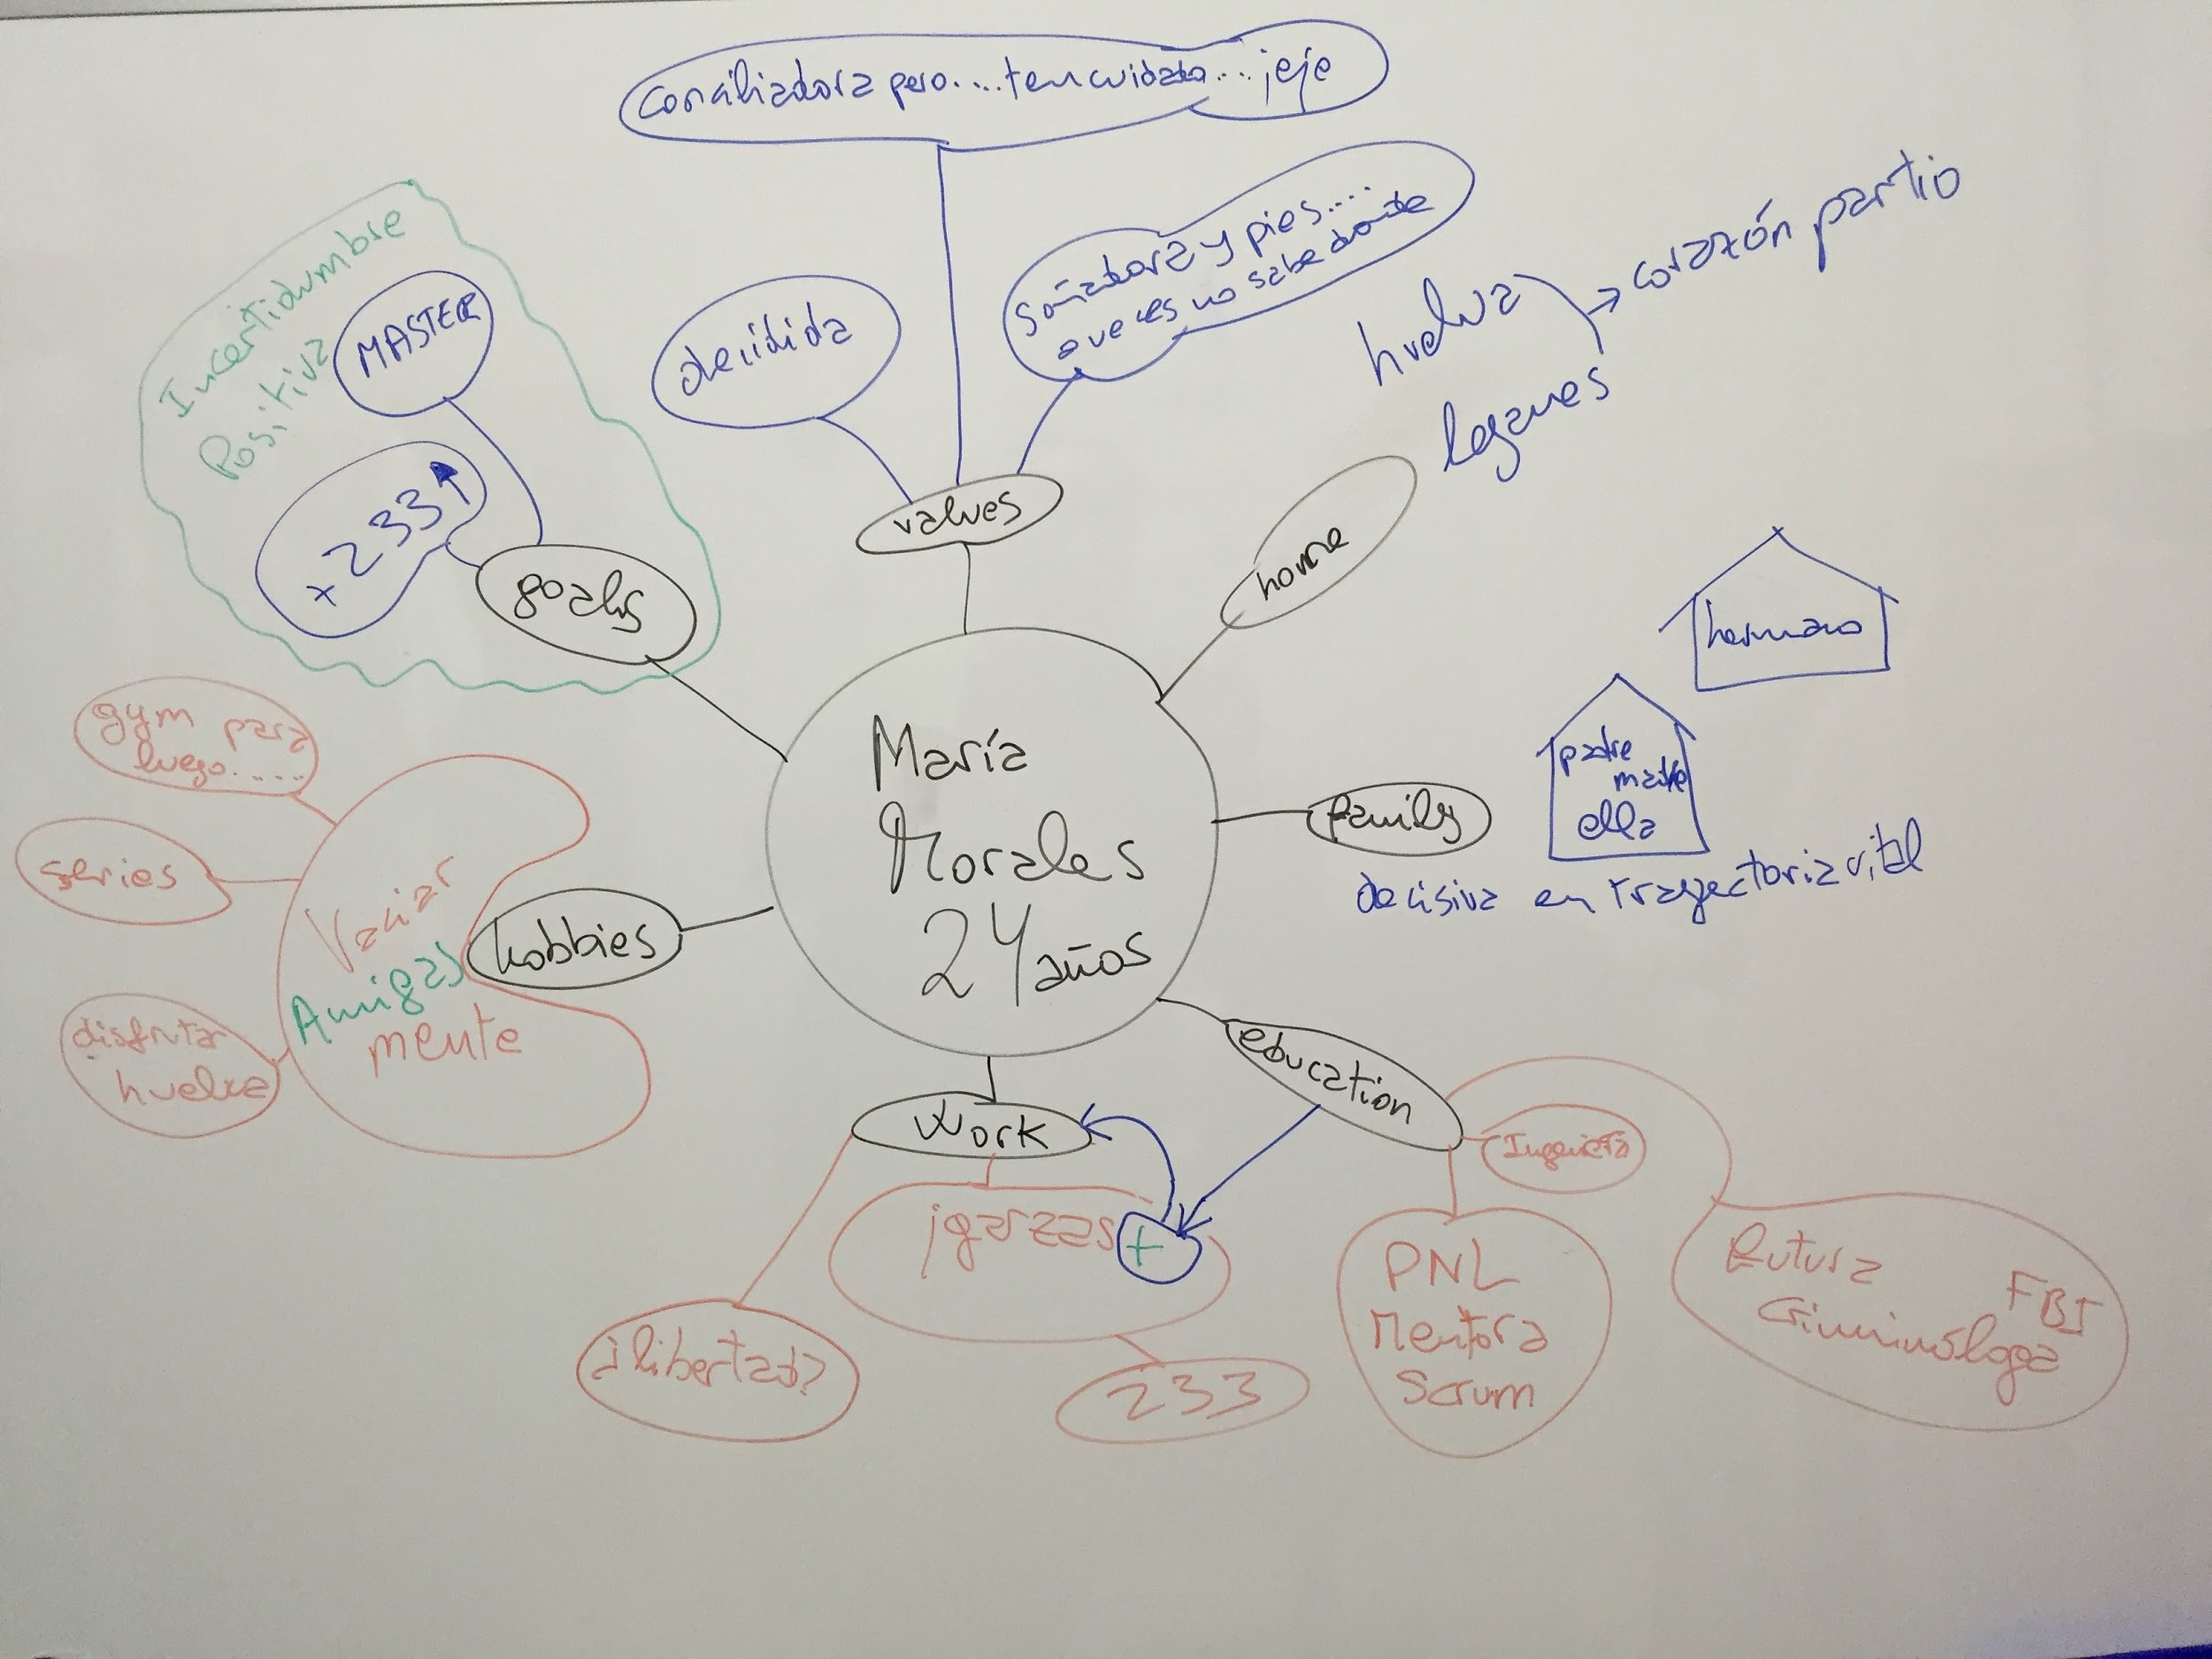 conciliadora pero....ten cuidado....jeje
Incertidumbre
Positiva
MASTER
+233↑
goals
decidida
Soñadora y pies....
a veces no sabe donde
values
huelva
→ corazón partio
leganes
home
hermano
padre
madre
ella
family
decisiva en trayectoria vital
María
Morales
24 años
gym para
luego.....
series
disfrutar
huelva
Vaciar
Amigas
mente
hobbies
work
jgarzas +
¿libertad?
233
education
Ingeniería
PNL
Mentora
Scrum
Futura
Criminóloga
FBI